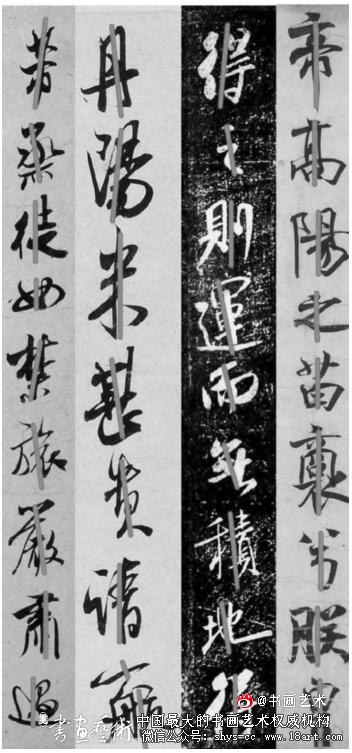 帝高陽之苗裔兮朕皇
得之則運而無積地得
丹陽米甚貴請一航
芾烝徒如禁旅嚴肅過
@书画艺术
書畫藝術 中国最大的书画艺术权威机构
微信公众号: shys-cc. www.18art.com